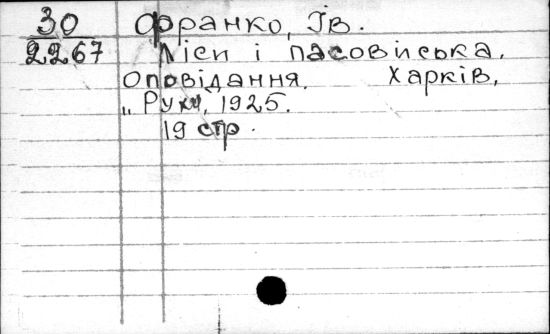 30 Франко, Ів.
2267 Ліси і пасовиська.
Оповідання. Харків,
„Рух", 1925.
19 стр.